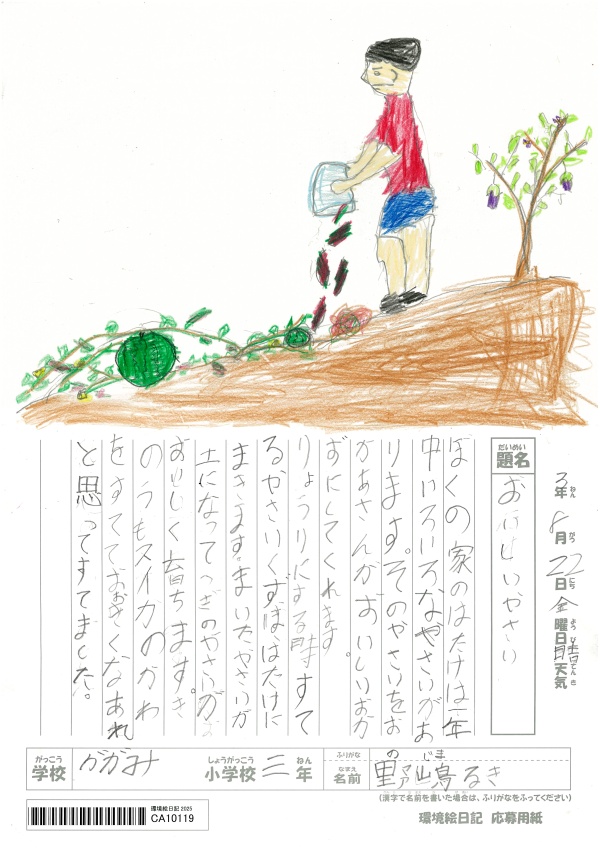 3年 8月 22日 金曜日 晴天気
ねん がつ にち ようび てんき
だいめい
題名
おいしいやさい
ぼくの家のはたけは一年
中いろいろなやさいがあ
ります。そのやさいをお
かあさんがおいしいおか
ずにしてくれます。
りょうりにする時すて
るやさいくずははたけに
まきます。まいたやさいが
土になってつぎのやさいが
おいしく育ちます。き
のうもスイカのかわ
をすてておおきくなあれ
と思ってすてました。
がっこう
学校
かがみ
しょうがっこう
小学校
三
ねん
年
ふりがな
なまえ
名前
のじま
野嶋るき
(漢字で名前を書いた場合は、ふりがなをふってください)
環境絵日記 2025
CA10119
環境絵日記 応募用紙